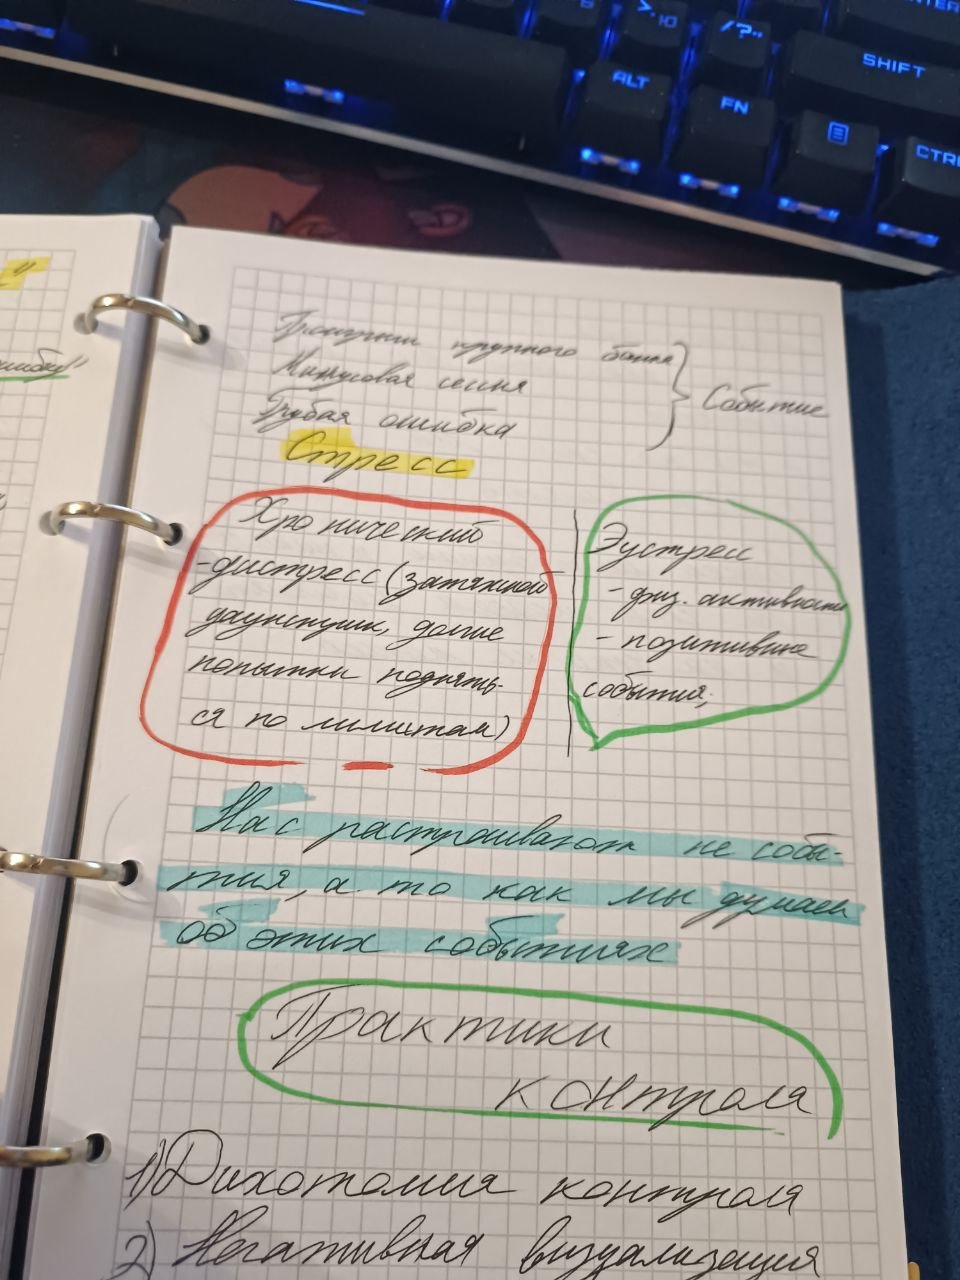 >.
Ю
/?..
SHIFT
ALT
FN
CTR
"
ошибку"
Проигрыш крупного банка
Минусовая сессия
Событие
Грубая ошибка
Стресс
Хронический
-дистресс (затяжной
даунстрик, долгие
попытки поднять-
ся по лимитам)
Эустресс
- физ. активность
- позитивные
события;
Нас растраивают не собы-
тия, а то как мы думаем
об этих событиях
Практики
контроля
1) Дихотомия контроля
2) Негативная визуализация